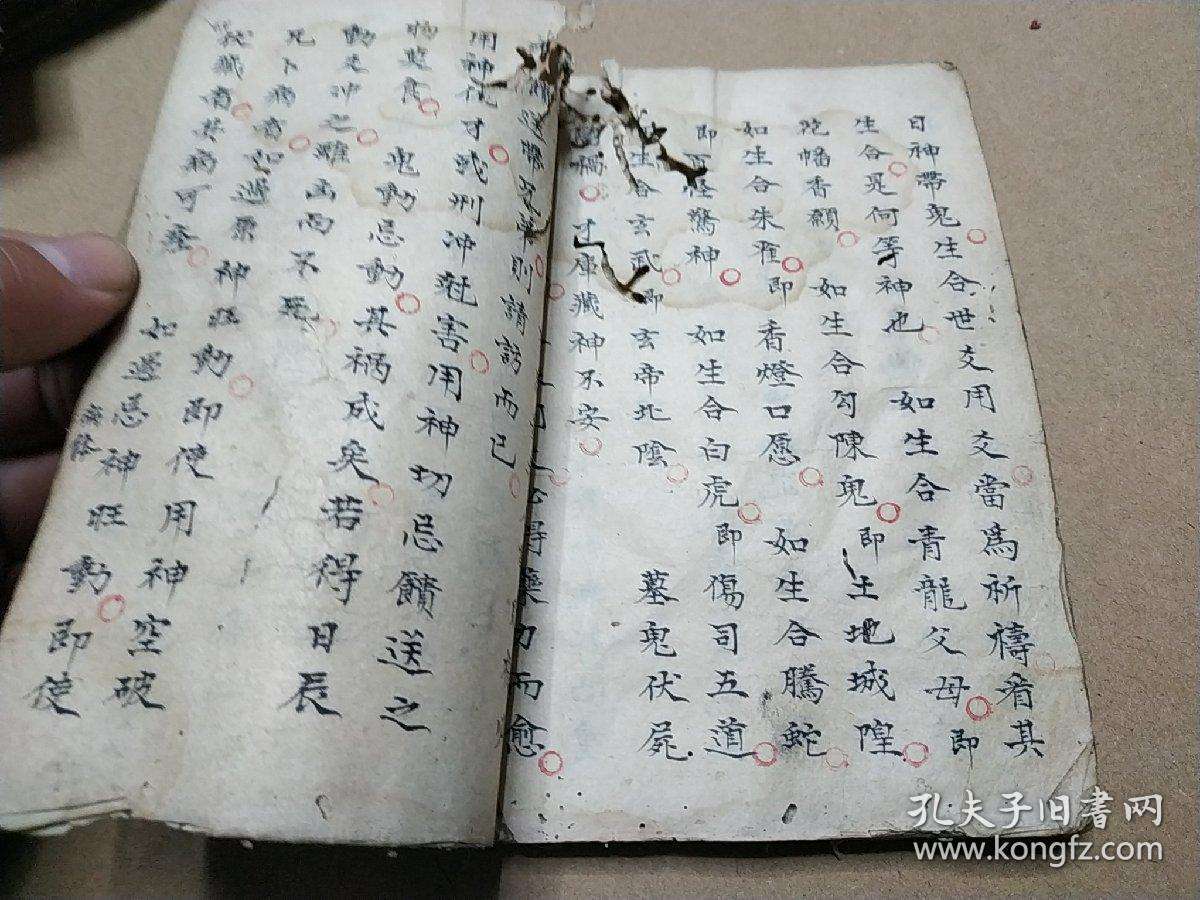 日神帶鬼生合世爻用爻當爲祈禱看其
生合是何等神也 如生合青龍父母即
旛香願 如生合勾陳鬼即土地城隍
如生合朱雀即香燈口愿 如生合騰蛇
即可怪驚神 如生合白虎即傷司五道
生合玄武即玄帝北陰 墓鬼伏屍
才庫藏神不安
得藥力而愈
則請訪而已
用神伏才或刑沖尅害用神切忌饋送之
鬼動忌動其禍成矣若得日辰
動爻冲之雖凶而不死
凡卜病者如遇票神旺動即使用神空破
伏藏者其病可痊 如遇忌神旺動即使
孔夫子旧書网
www.kongfz.com